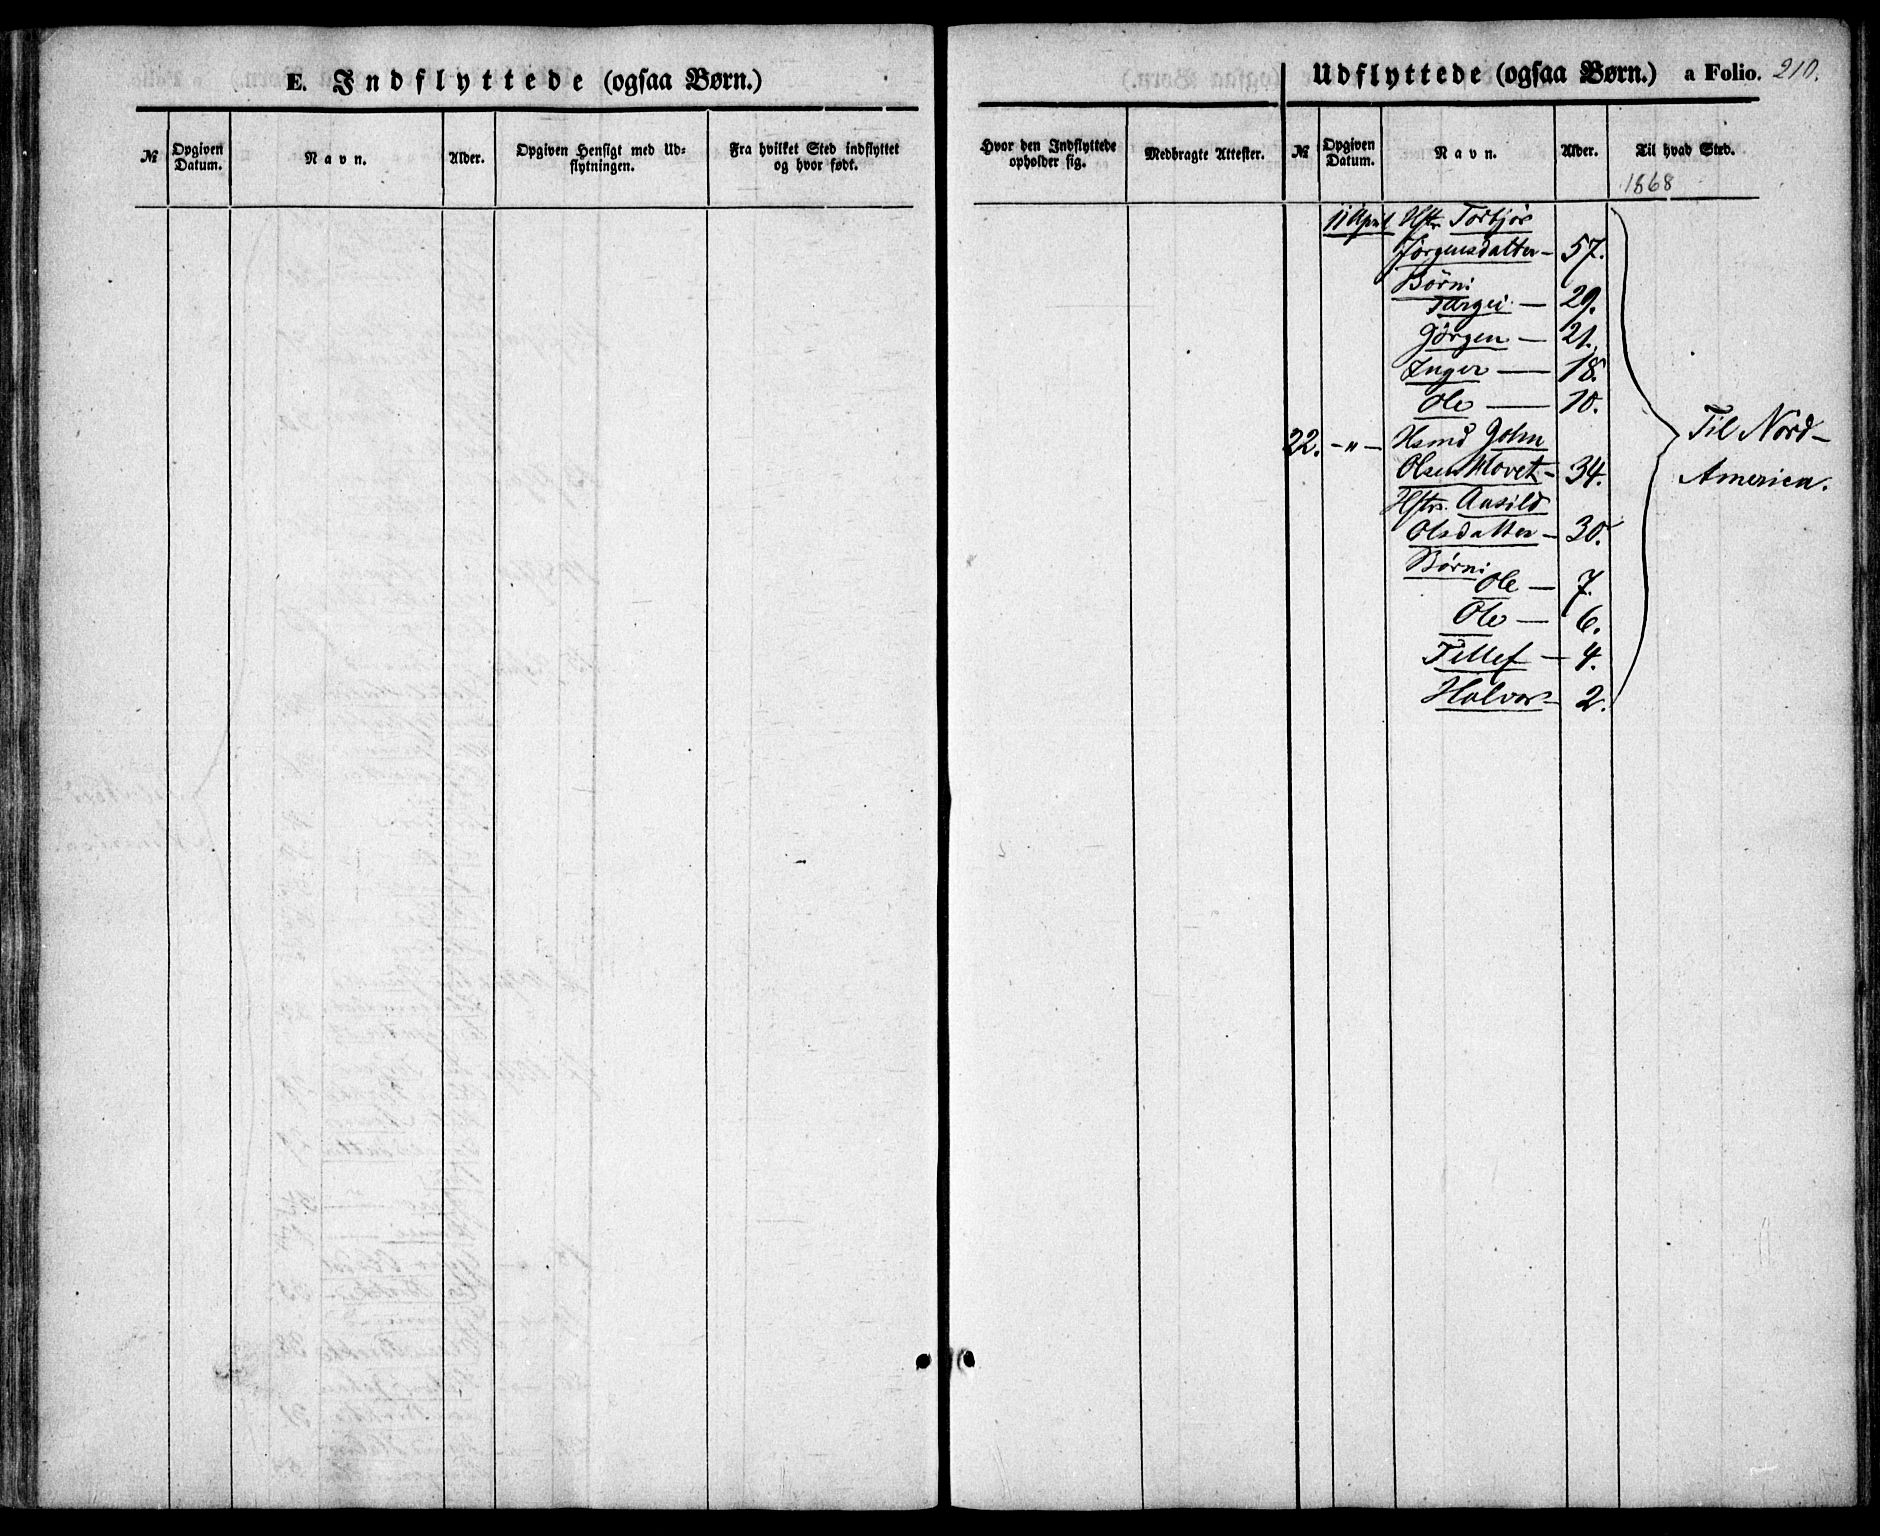 E. Indflyttede (ogsaa Børn.)
№ Opgiven Datum. Navn. Alder. Opgiven Hensigt med Udflytningen. Fra hvilket Sted indflyttet og hvor født.
Hvor den Indflyttede opholder sig. Medbragte Attester.
Udflyttede (ogsaa Børn.) a Folio. 210.
№ Opgiven Datum. Navn. Alder. Til hvad Sted.
1868
11 April Hstr Torbjør
Jørgensdatter – 57.
Børn:
Targei – 29.
Jørgen – 21.
Inger – 18.
Ole – 10.
22. – " – Hsmd John
Olsen Hovet – 34.
Hstrs. Aasild
Olsdatter – 30.
Børn:
Ole – 7.
Ole – 6.
Tellef – 4.
Halvor – 2.
Til Nord-
America.